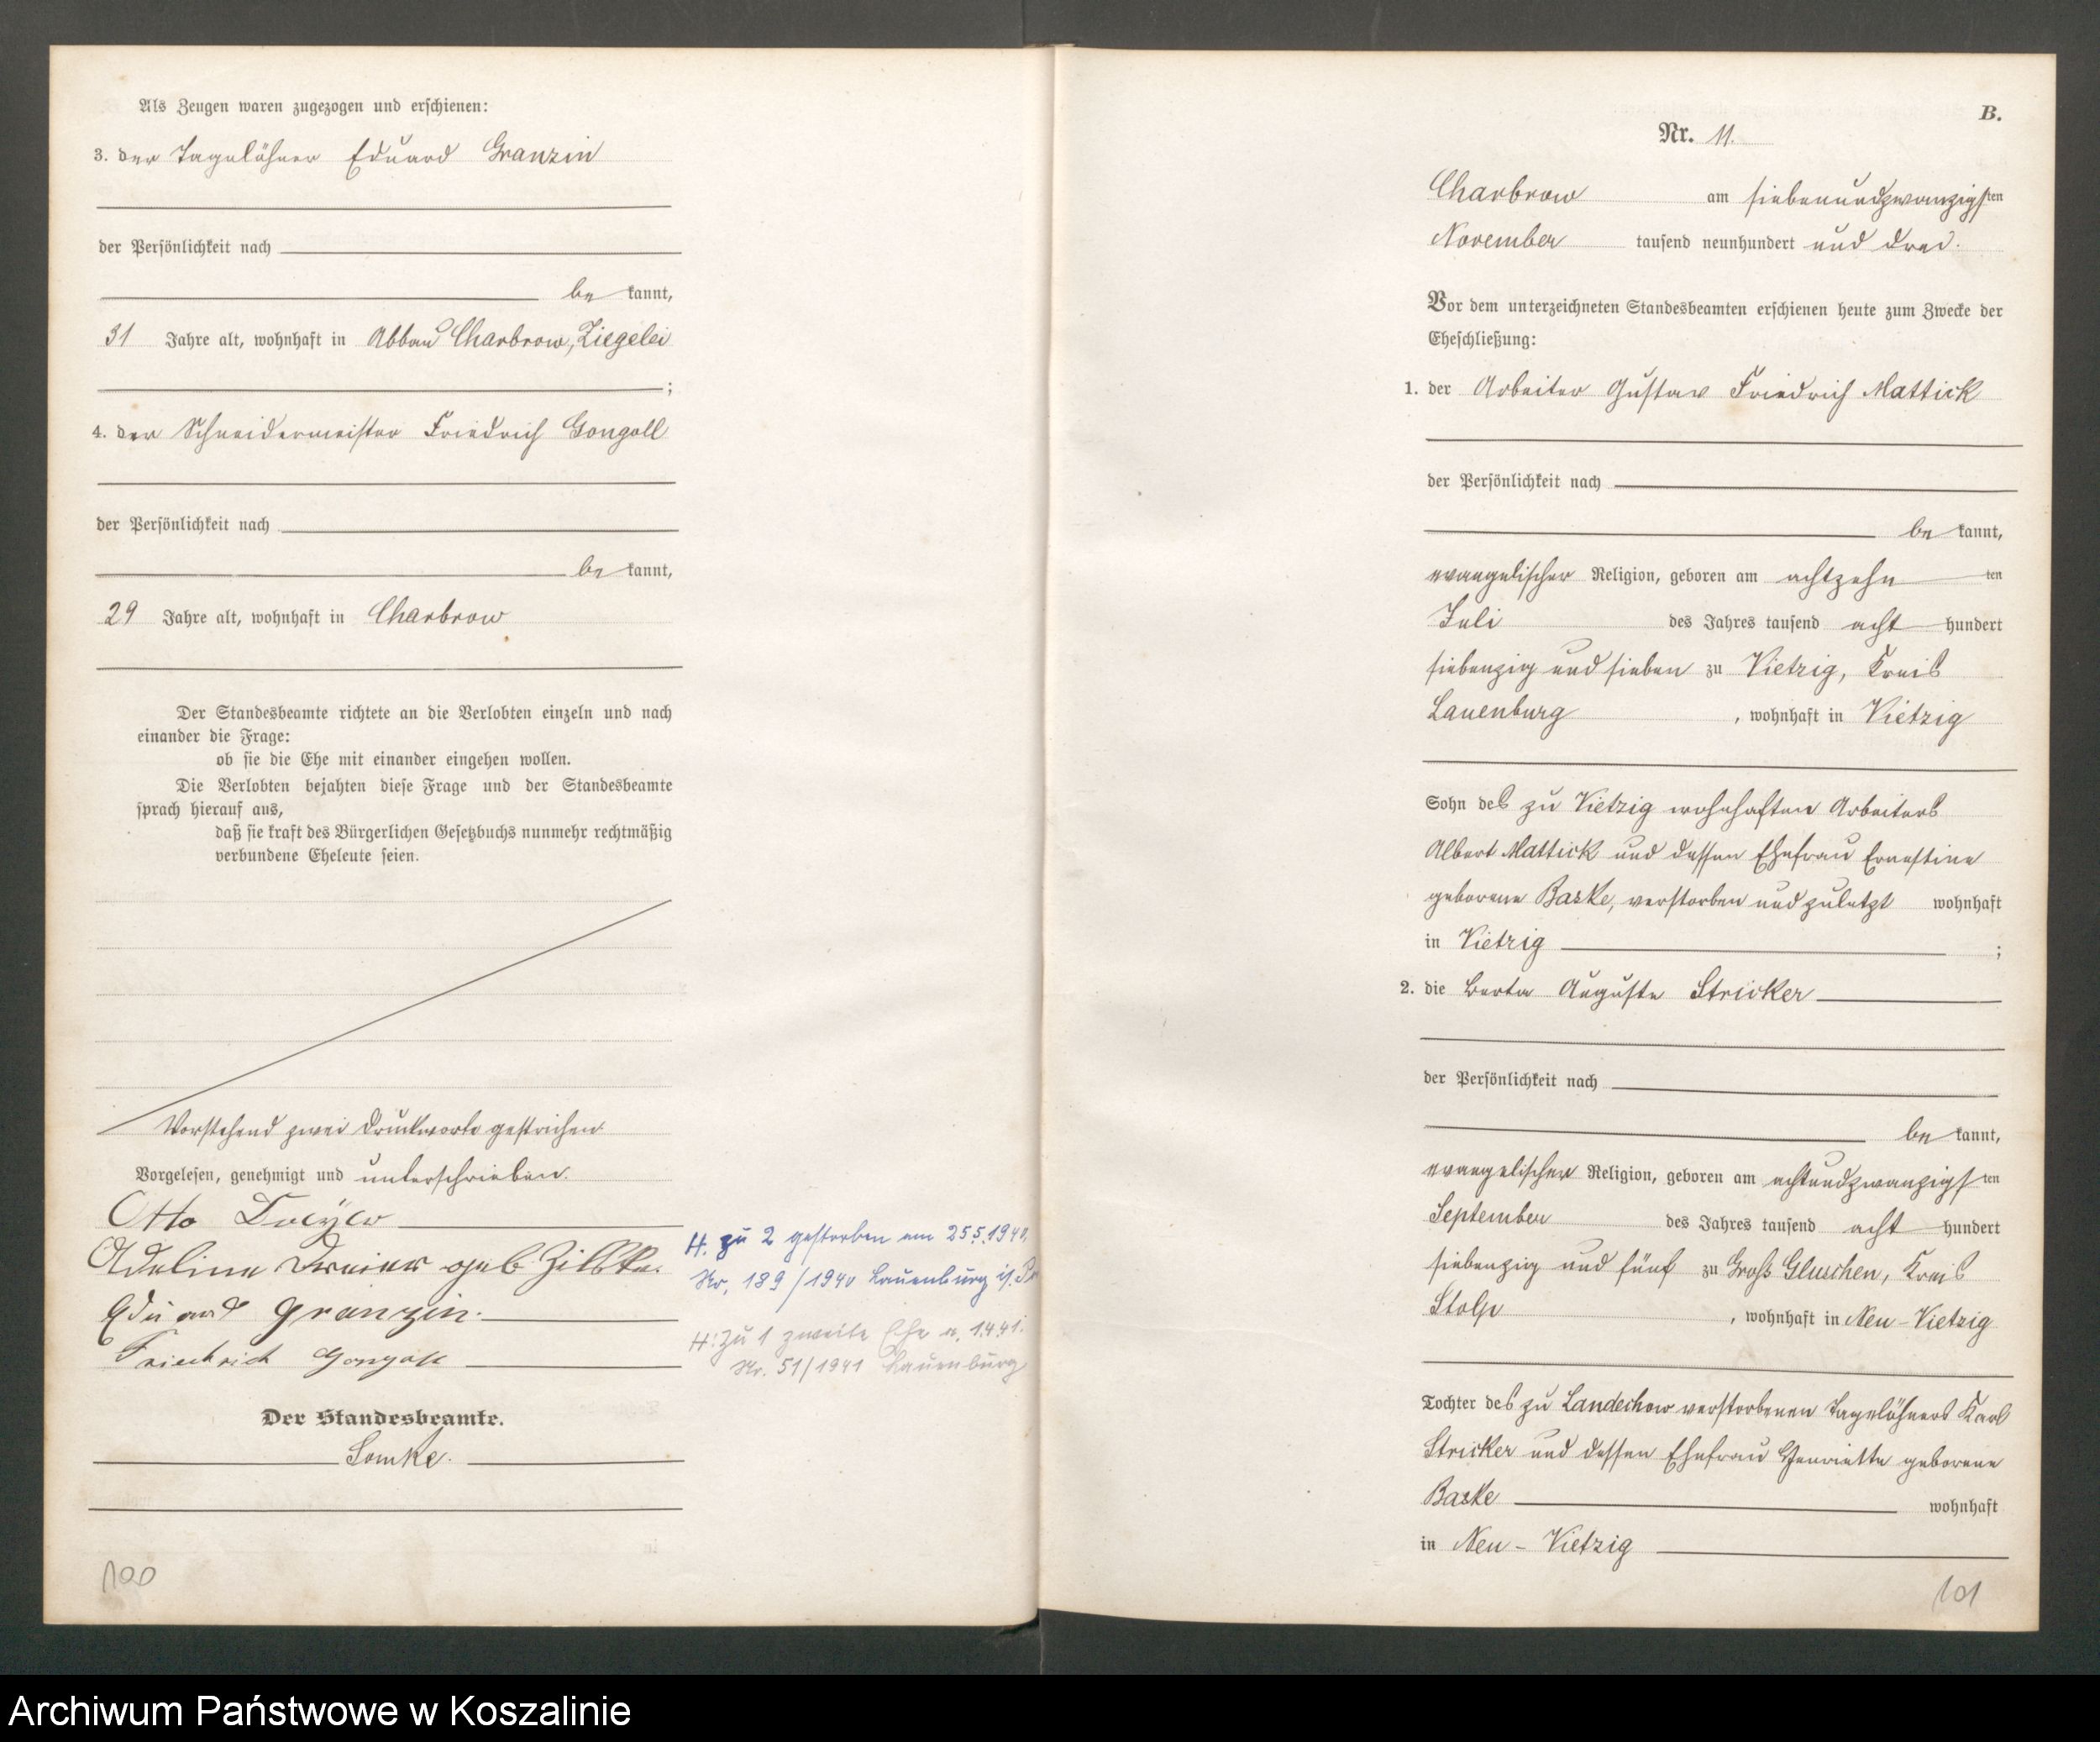 Als Zeugen waren zugezogen und erschienen:
3. der Tagelöhner Eduard Granzin
der Persönlichkeit nach
be kannt,
31 Jahre alt, wohnhaft in Abbau Charbrow, Ziegelei
;
4. der Schneidermeister Friedrich Gongoll
der Persönlichkeit nach
be kannt,
29 Jahre alt, wohnhaft in Charbrow
Der Standesbeamte richtete an die Verlobten einzeln und nach
einander die Frage:
ob sie die Ehe mit einander eingehen wollen.
Die Verlobten bejahten diese Frage und der Standesbeamte
sprach hierauf aus,
daß sie kraft des Bürgerlichen Gesetzbuchs nunmehr rechtmäßig
verbundene Eheleute seien.
Vorstehend zwei Druckworte gestrichen.
Vorgelesen, genehmigt und unterschrieben.
Otto
Adeline geb
Eduard Granzin.
Friedrich Gongoll
Der Standesbeamte.
Lomke.
100
H. zu 2 gestorben am 25.5.1940.
Nr. 189/1940 Lauenburg i/. Po
H: Zu 1 zweite Ehe a. 1.4.41.
Nr. 51/1941 Lauenburg
B.
Nr. 11.
Charbrow am siebenundzwanzigsten
November tausend neunhundert und drei.
Vor dem unterzeichneten Standesbeamten erschienen heute zum Zwecke der
Eheschließung:
1. der Arbeiter Gustav Friedrich Mattick
der Persönlichkeit nach
be kannt,
evangelischer Religion, geboren am achtzehn ten
Juli des Jahres tausend acht hundert
siebenzig und sieben zu Vietzig, Kreis
Lauenburg, wohnhaft in Vietzig
Sohn des zu Vietzig wohnhaften Arbeiters
Albert Mattick und dessen Ehefrau Ernestine
geborene Baske, verstorben und zuletzt wohnhaft
in Vietzig ;
2. die Berta Auguste Stricker
der Persönlichkeit nach
be kannt,
evangelischer Religion, geboren am achtundzwanzigsten
September des Jahres tausend acht hundert
siebenzig und fünf zu Groß Gluschen, Kreis
Stolp, wohnhaft in Neu-Vietzig
Tochter des zu Landechow verstorbenen Tagelöhners Karl
Stricker und dessen Ehefrau Henriette geborene
Baske wohnhaft
in Neu-Vietzig
101
Archiwum Państwowe w Koszalinie